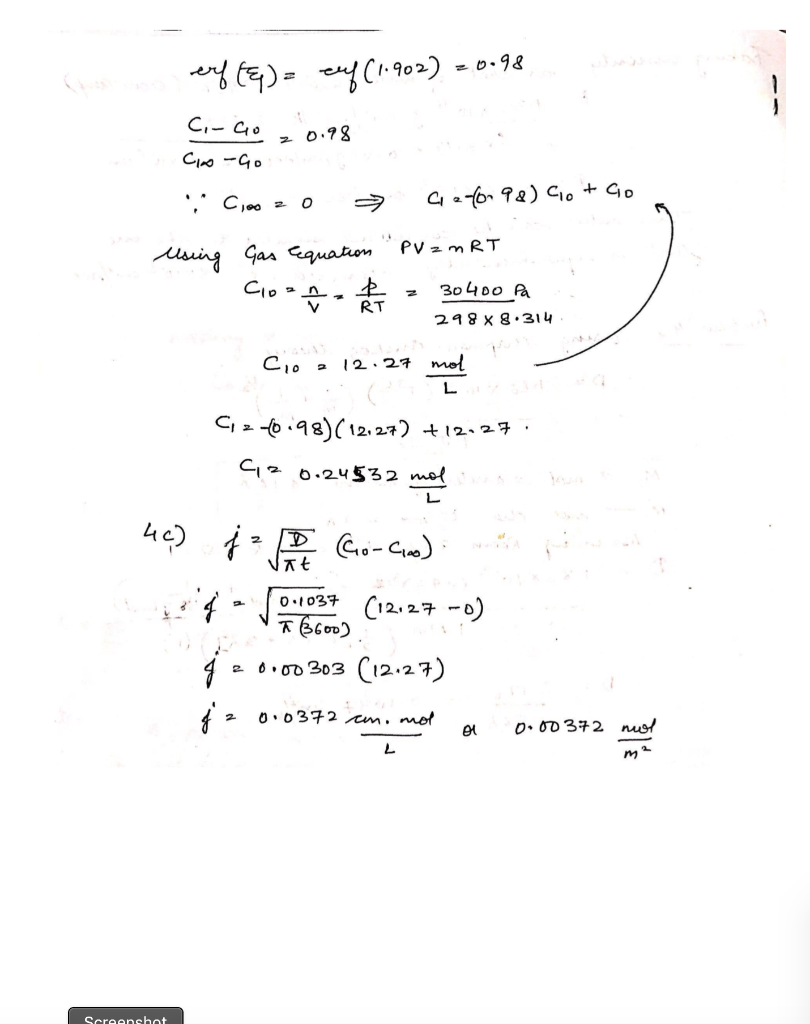 erf(ξ) = erf(1.902) = 0.98
C₁ − C₁₀ / C₁∞ − C₁₀ = 0.98
∵ C₁∞ = 0 ⇒ C₁ = −(0.98) C₁₀ + C₁₀
Using Gas Equation PV = nRT
C₁₀ = n/V = p/RT = 30400 Pa / 298 × 8.314
C₁₀ = 12.27 mol/L
C₁ = −(0.98)(12.27) + 12.27.
C₁ = 0.24532 mol/L
4c) j = √(D/πt) (C₁₀ − C₁∞)
j = √(0.1037/π(3600)) (12.27 − 0)
j = 0.00303 (12.27)
j = 0.0372 cm. mol/L or 0.00372 mol/m²
Screenshot